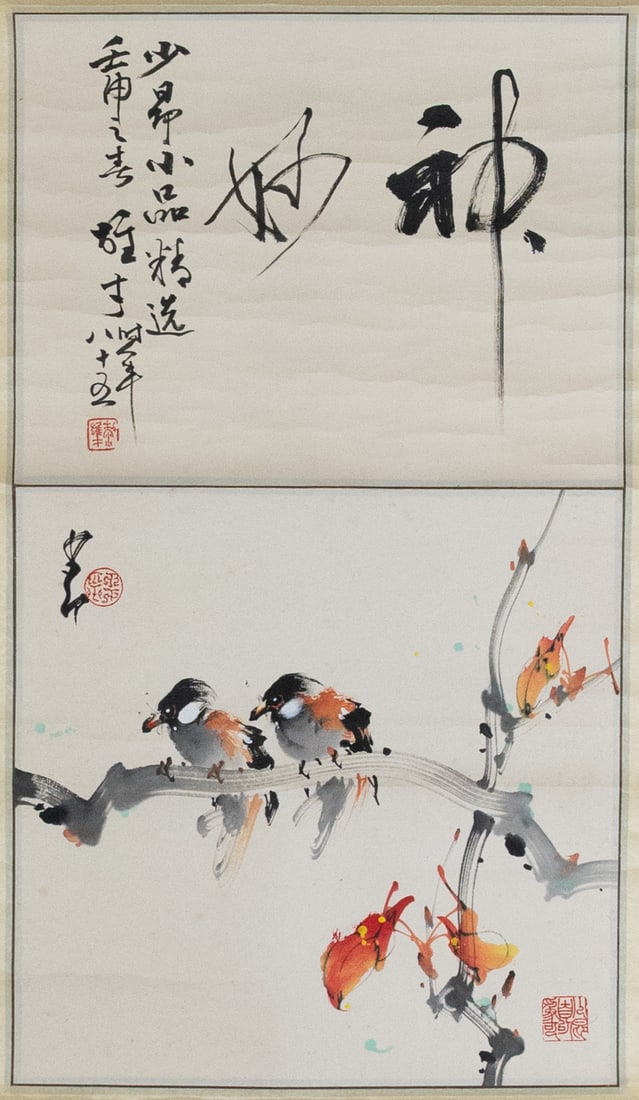 神妙
少昂小品精选
壬申之春 雄才
时年
八十五
少昂